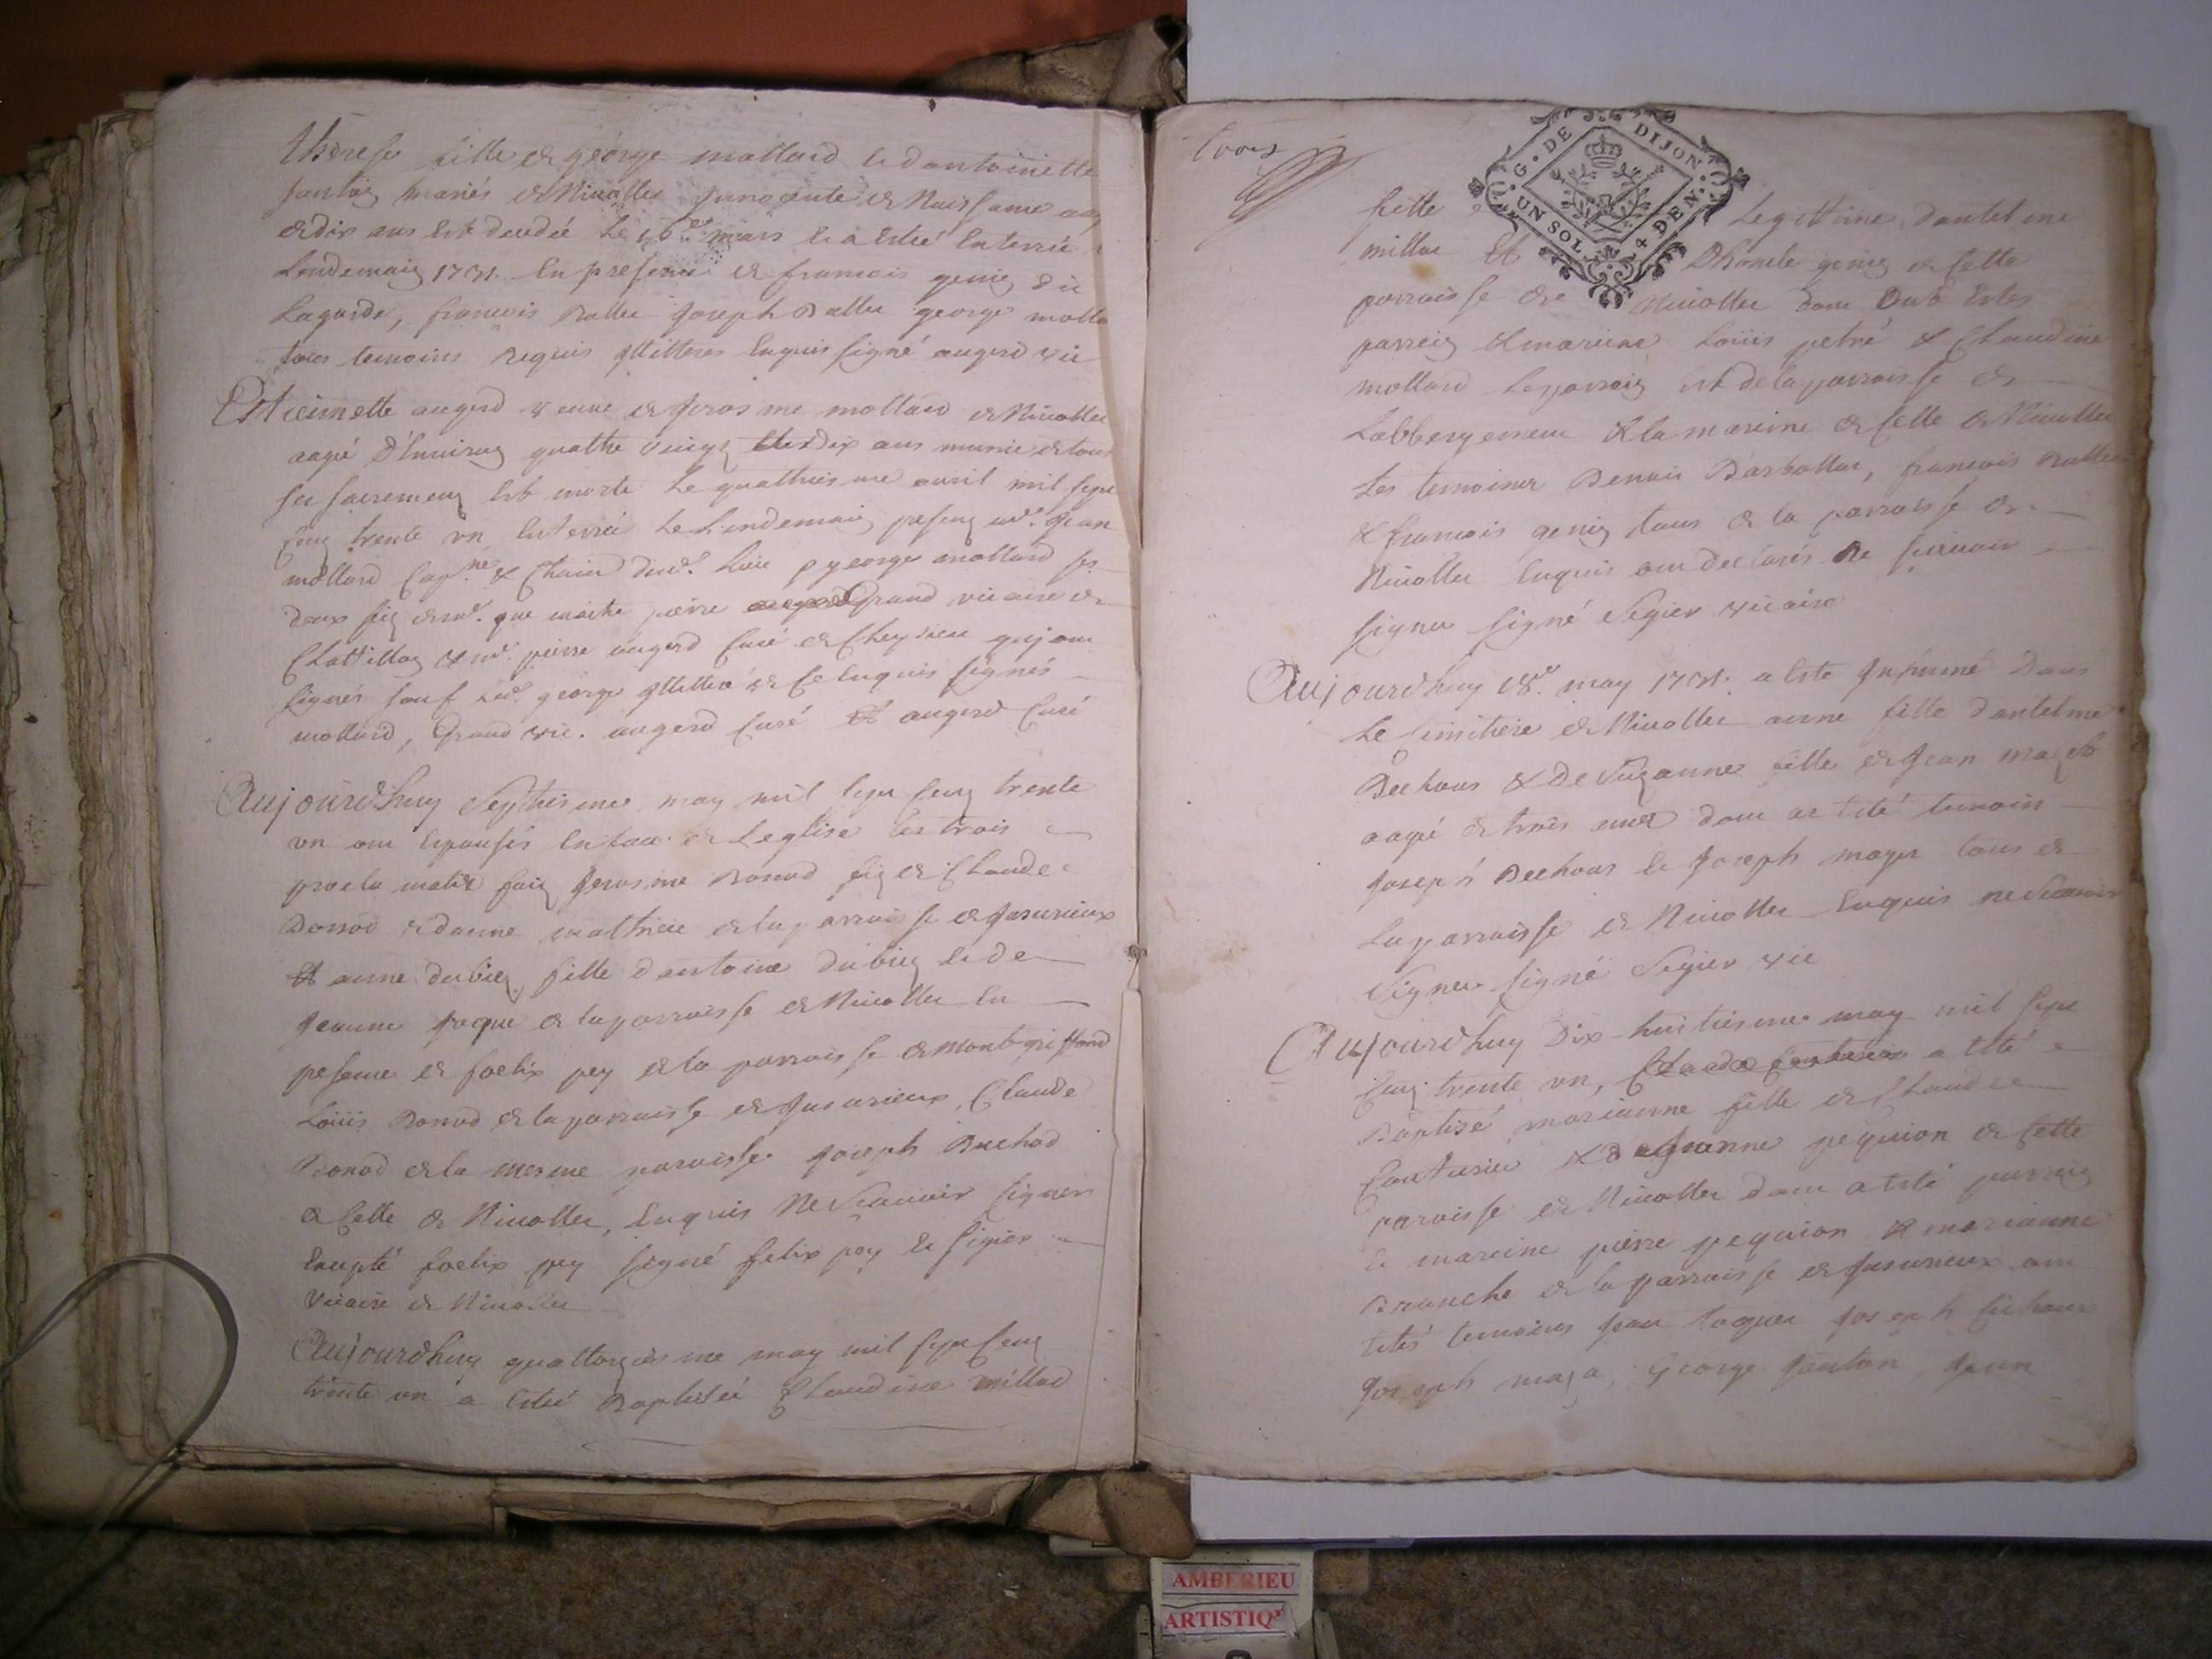 Therese fille de géorge mollard et dantoinette
janton mariés de Nivollet innocente de Naissance aag
de dix ans est decedée le 16e mars et a estéé enterrée
Lendemain 1731. en presence de francois genin dit
Lagarde, francois Ballu joseph Ballu george molla
tous temoins Requis illitteres enquis signé augerd vic
Estiennette augerd veuve de jerosme mollard de Nivollet
aagé d'Environ quathre vingt dix ans munie de tous
ses sacremens est morte le quathriesme avril mil sept
cens trente un enterrée le Lendemain presens mr. jean
mollard Cap.ne & Chatn dud. Lieu & george mollard ses
deux fils de mr. que maitre pierre Grand vicaire de
Chattillon & mr. pierre augerd Curé de Cheysieu qui ont
signés sauf led. george illittéré de ce enquis signés
mollard, Grand vic. augerd Curé augerd Curé
Aujourdhuy septhiesme may mil sept cens trente
un ont epousés en face de Leglise les trois
proclamations fais jerosme Bonod fils de Claude
Bonod & danne mathieu de la parroisse de jusurieux
& anne dubien fille dantoine dubien et de
jeanne joque de la parroisse de Nivollet en
presence de foelix pey de la parroisse de montgriffond
Loüis Bonod de la parroisse de jusurieux, Claude
Bonod de la mesme paroisse joseph Buchod
de Celle de Nivollet, enquis Ne scavoir signer
Excepté foelix pey signé felix pey et sigier
vicaire de Nivollet
Aujourdhuy quattorziesme may mil sept cens
trente un a estéé Baptisée Claudine millod
trois
G. DE DIJON
UN SOL 4 DEN.
fille Legittime dantelme
millac Et genin de Cette
parroisse de Nivollet dont ont estes
parrein & mareine Loüis petré & Claudine
mollard Le parrein est de la parroisse de
Labbergement & la mareine de Celle de Nivollet
Les temoines Benoit Barbollat, francois Ballu
& francois genin tous de la parroisse de
Nivollet enquis ont declarés Ne scavoir
signer signé sigier vicaire
Aujourdhuy 18e. may 1731. a este Inhumé dans
Le Cimitiere de Nivollet anne fille dantelme
Bechous & de Suzanne fille de jean
aagé de trois dont ont esté temoin
joseph Bechous et joseph mager tous de
La parroisse de Nivollet enquis ne scavoir
signer signé sigier vic
Aujourdhuy dix-huitiesme may mil sept
cens trente un, a esté
Baptisé marianne fille de Claude
Couturier & de jeanne pequion de Cette
paroisse de Nivollet dont a esté parrein
et mareine pierre pequion & marianne
Branche de la parroisse de jusurieux ont
estés temoins jean joquet joseph
joseph maza, George janton, jean
AMBERIEU
ARTISTIQ